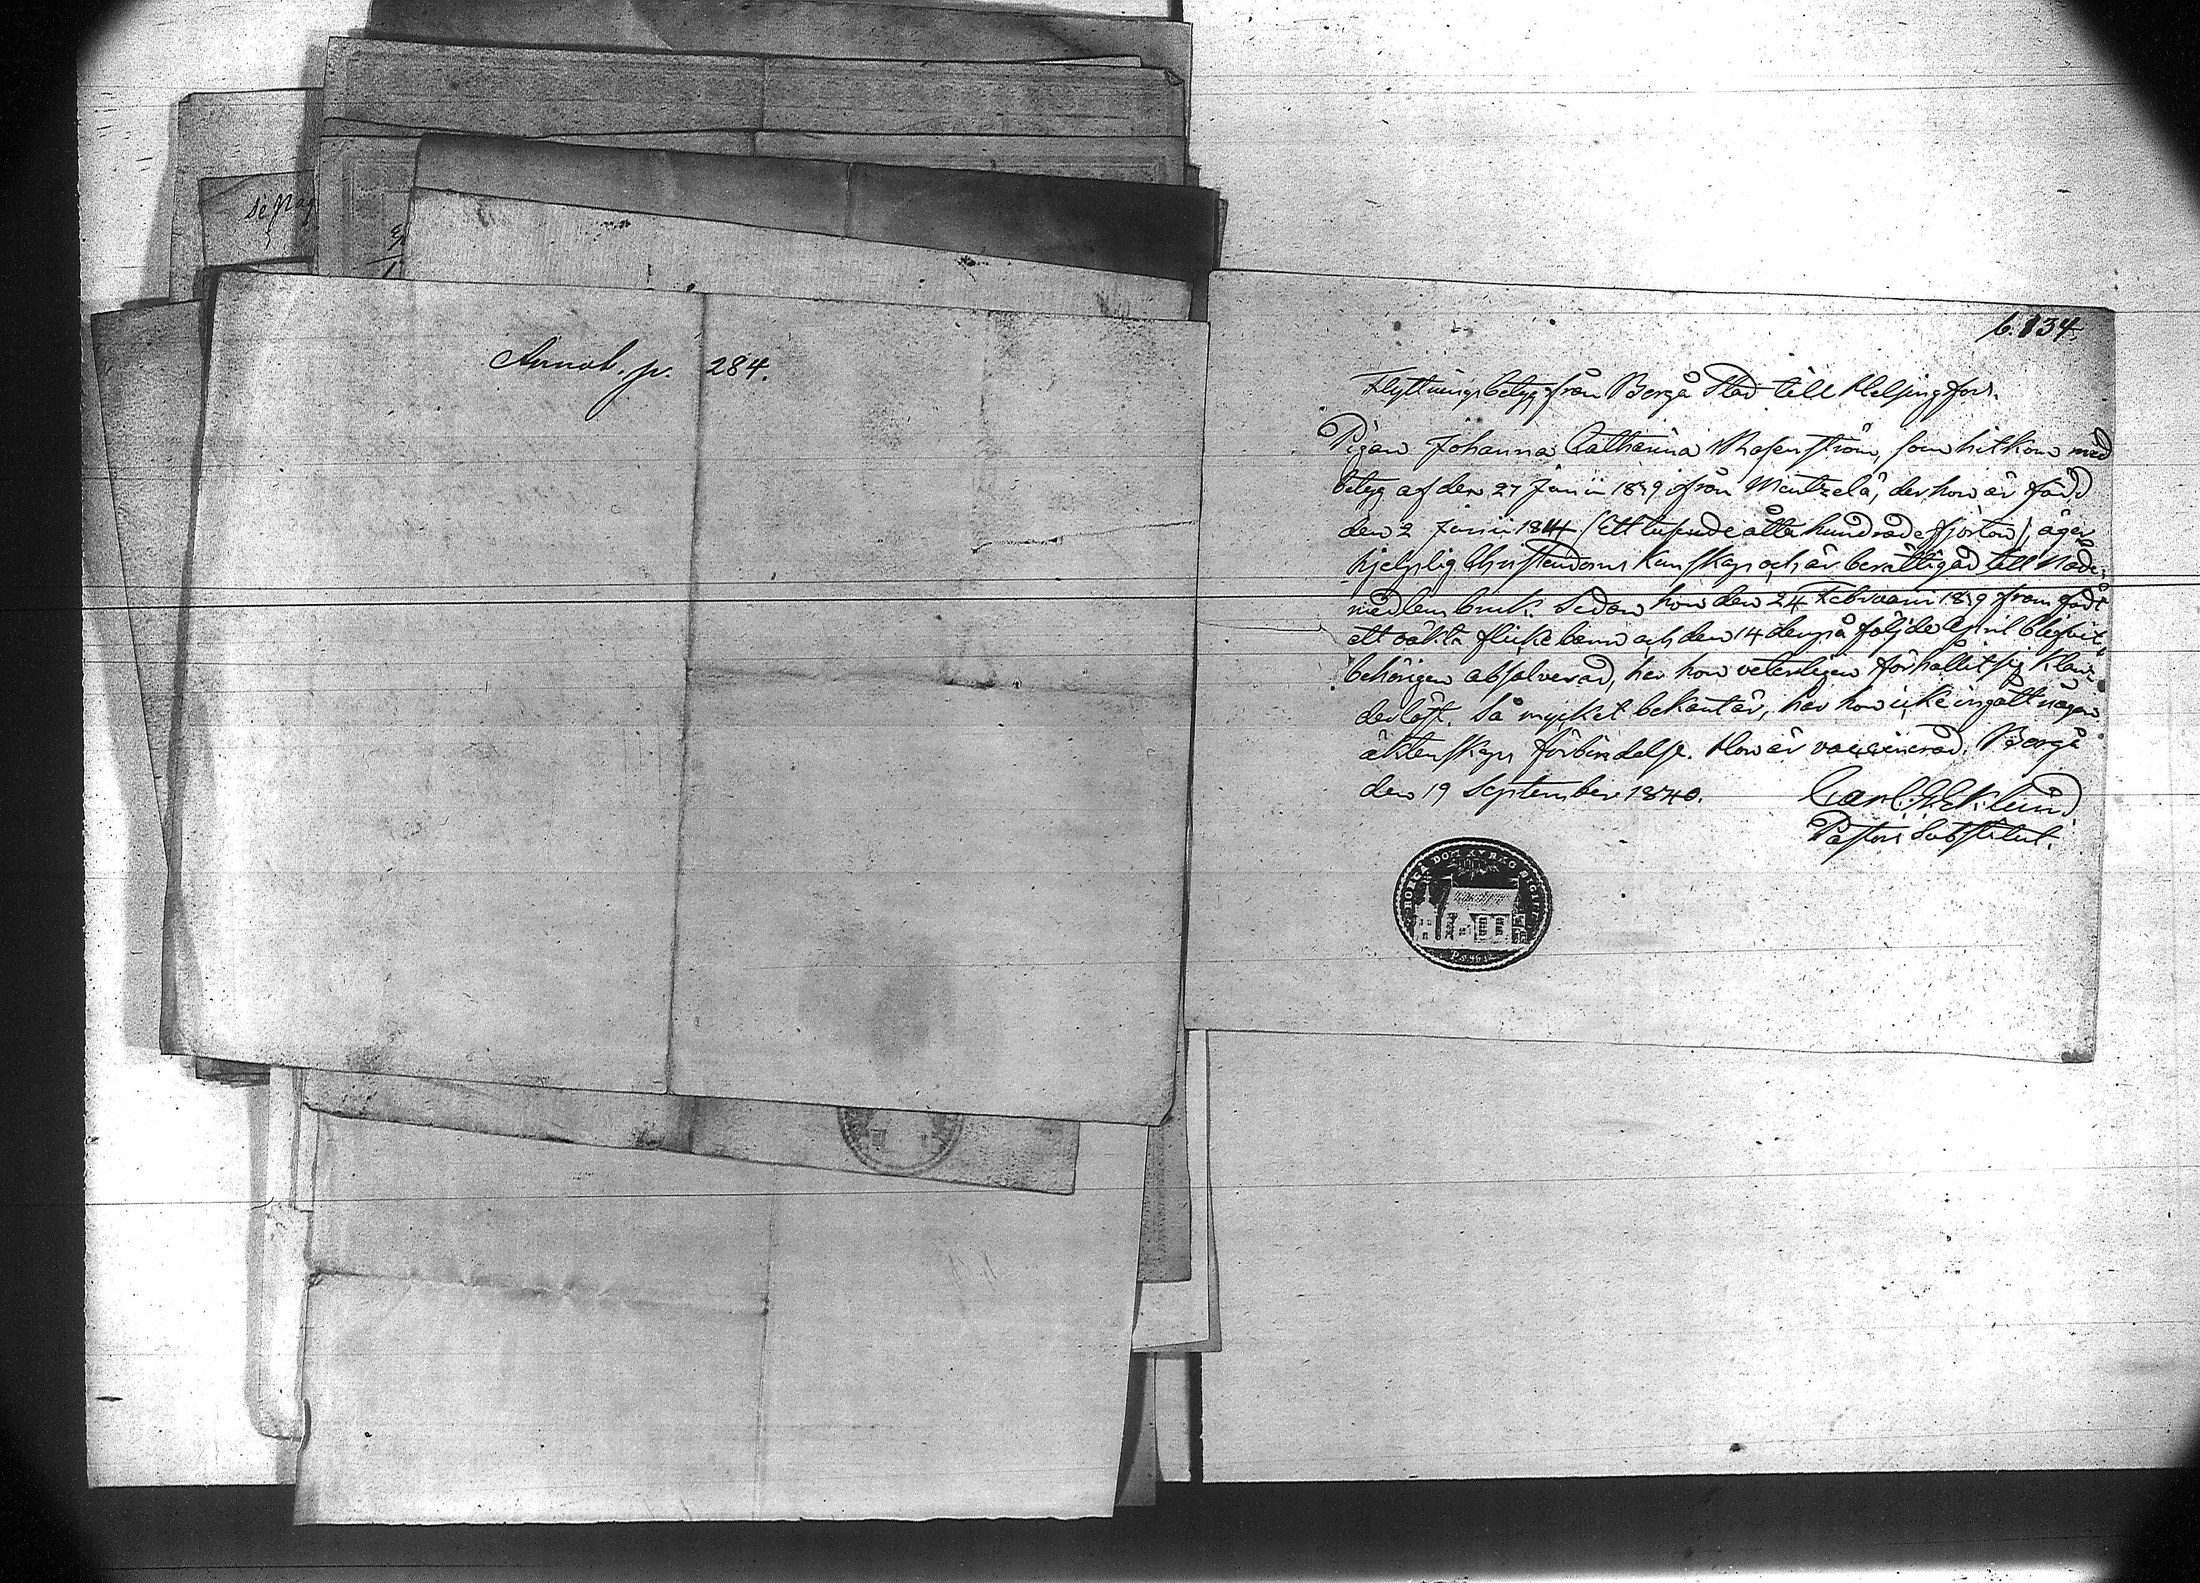 Annot. p. 284.
b. 134.
Flyttningsbetyg från Borgå Stad till Helsingfors.
Pigan Johanna Catharina Rosenström, som hitkom med
betyg af den 27 Junii 1839 ifrån Mäntzelä, der hon är född
den 2 Junii 1814 (Ett tusende åtta hundrade fjorton), äger
hjelplig Christendoms kunskap och är berättigad till Nåde-
medlens bruk. Sedan hon den 24 Februarii 1839 framfödt
ett oäkta flickebarn och den 14 derpå följde April blifvit
behörigen absolverad, har hon veterligen förhållit sig klan-
derlöst. Så mycket bekant är, har hon icke ingått någon
äktenskaps förbindelse. Hon är vaccinerad. Borgå
den 19 September 1840.
Carl G. Eklund
Pastors Substitut.
BORGÅ DOM KYRKO SIGILL